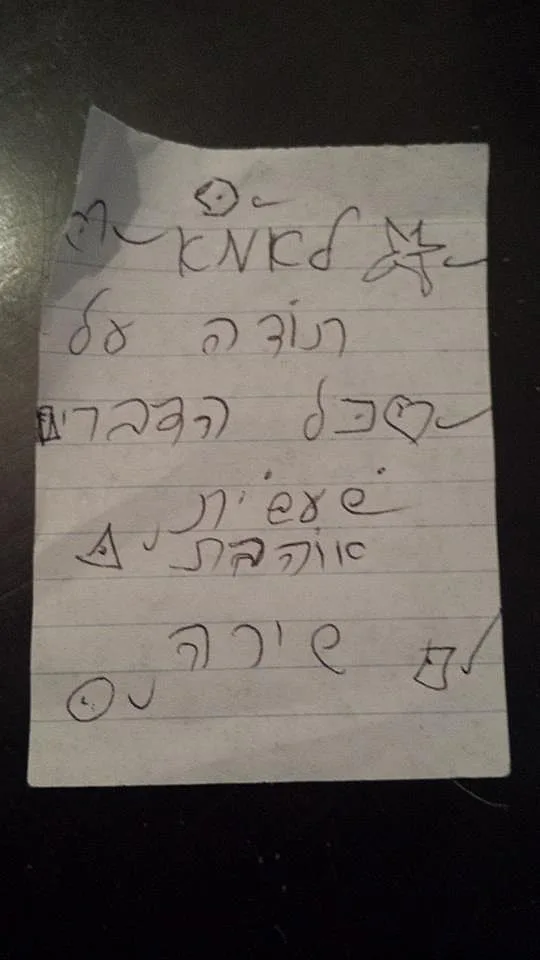 לאמא
תודה על
כל הדברים
שעשית
אוהבת
שירה